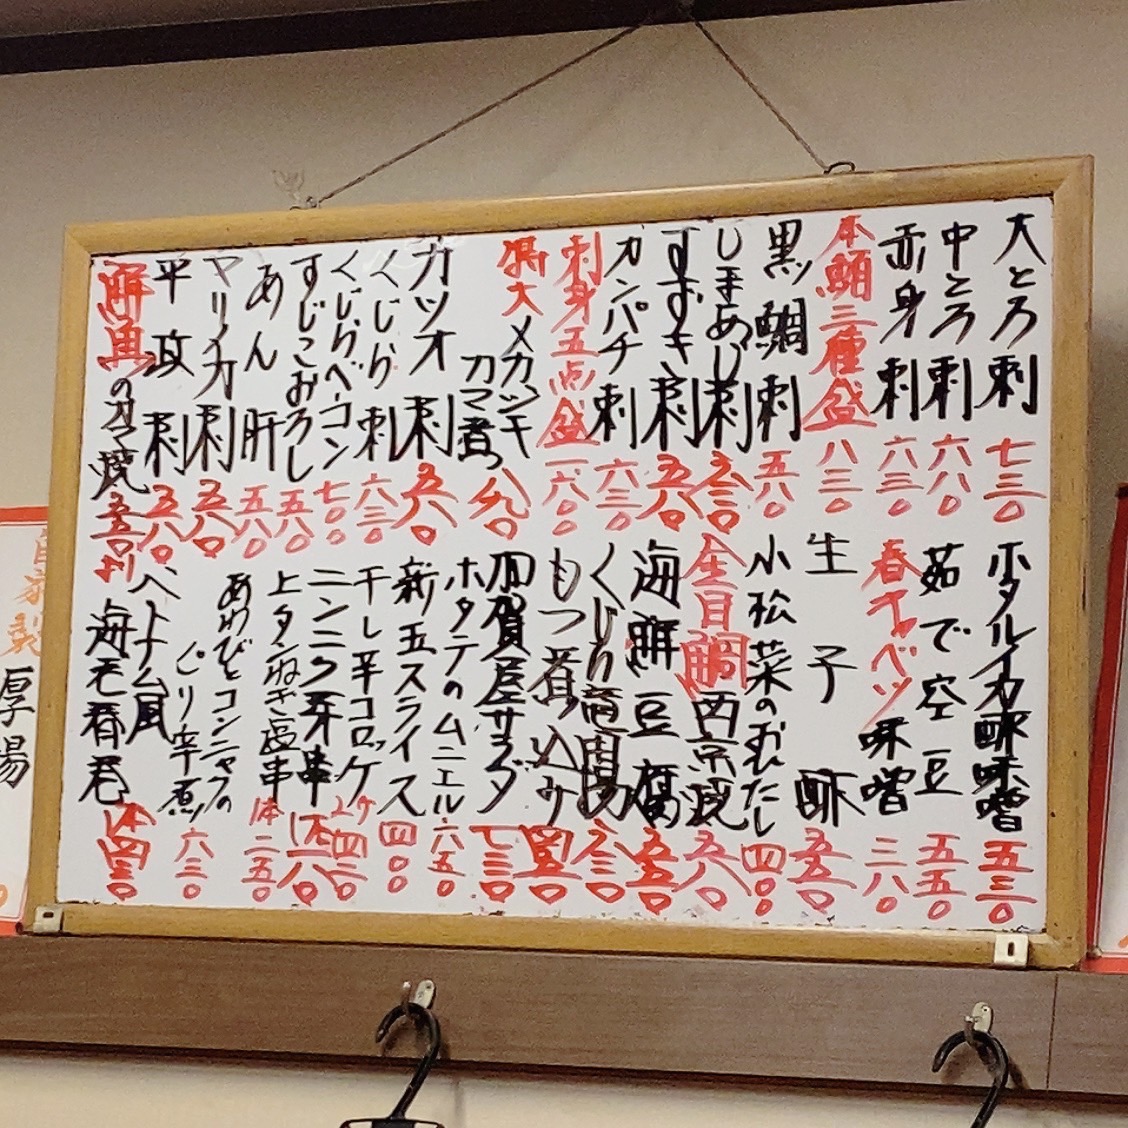 大とろ刺 七三〇
中とろ刺 六八〇
赤身刺 六三〇
本鮪三種盛 八三〇
黒鯛刺 五八〇
しまあじ刺 六三〇
すずき刺 五八〇
カンパチ刺 六三〇
刺身五点盛 一六〇〇
特大メカジキ
カマ煮つ 八九〇
カツオ刺 五八〇
くじら刺 六三〇
くじらベーコン 七〇〇
すじこおろし 五八〇
あん肝 五八〇
ヤリイカ刺 五八〇
平政刺 五八〇
鮮魚のカマ焼 五五〇より
ホタルイカ酢味噌 五三〇
茹で空豆 五五〇
春キャベツ味噌 三八〇
生子酢 五五〇
小松菜のおひたし 四〇〇
金目鯛西京焼 五八〇
海鮮豆腐 五五〇
くじら竜田揚 六三〇
もつ煮込み 四五〇
加賀屋サラダ 七三〇
ホタテのムニエル 六五〇
新玉スライス 四〇〇
干し芋コロッケ 2ケ 四五〇
ニンニク芽串 1本 二八〇
上タンねぎ塩串 1本 二五〇
あわびとコンニャクの
ぴり辛煮 六三〇
ベトナム風
海老春巻 1本 四三〇
自家製
厚揚